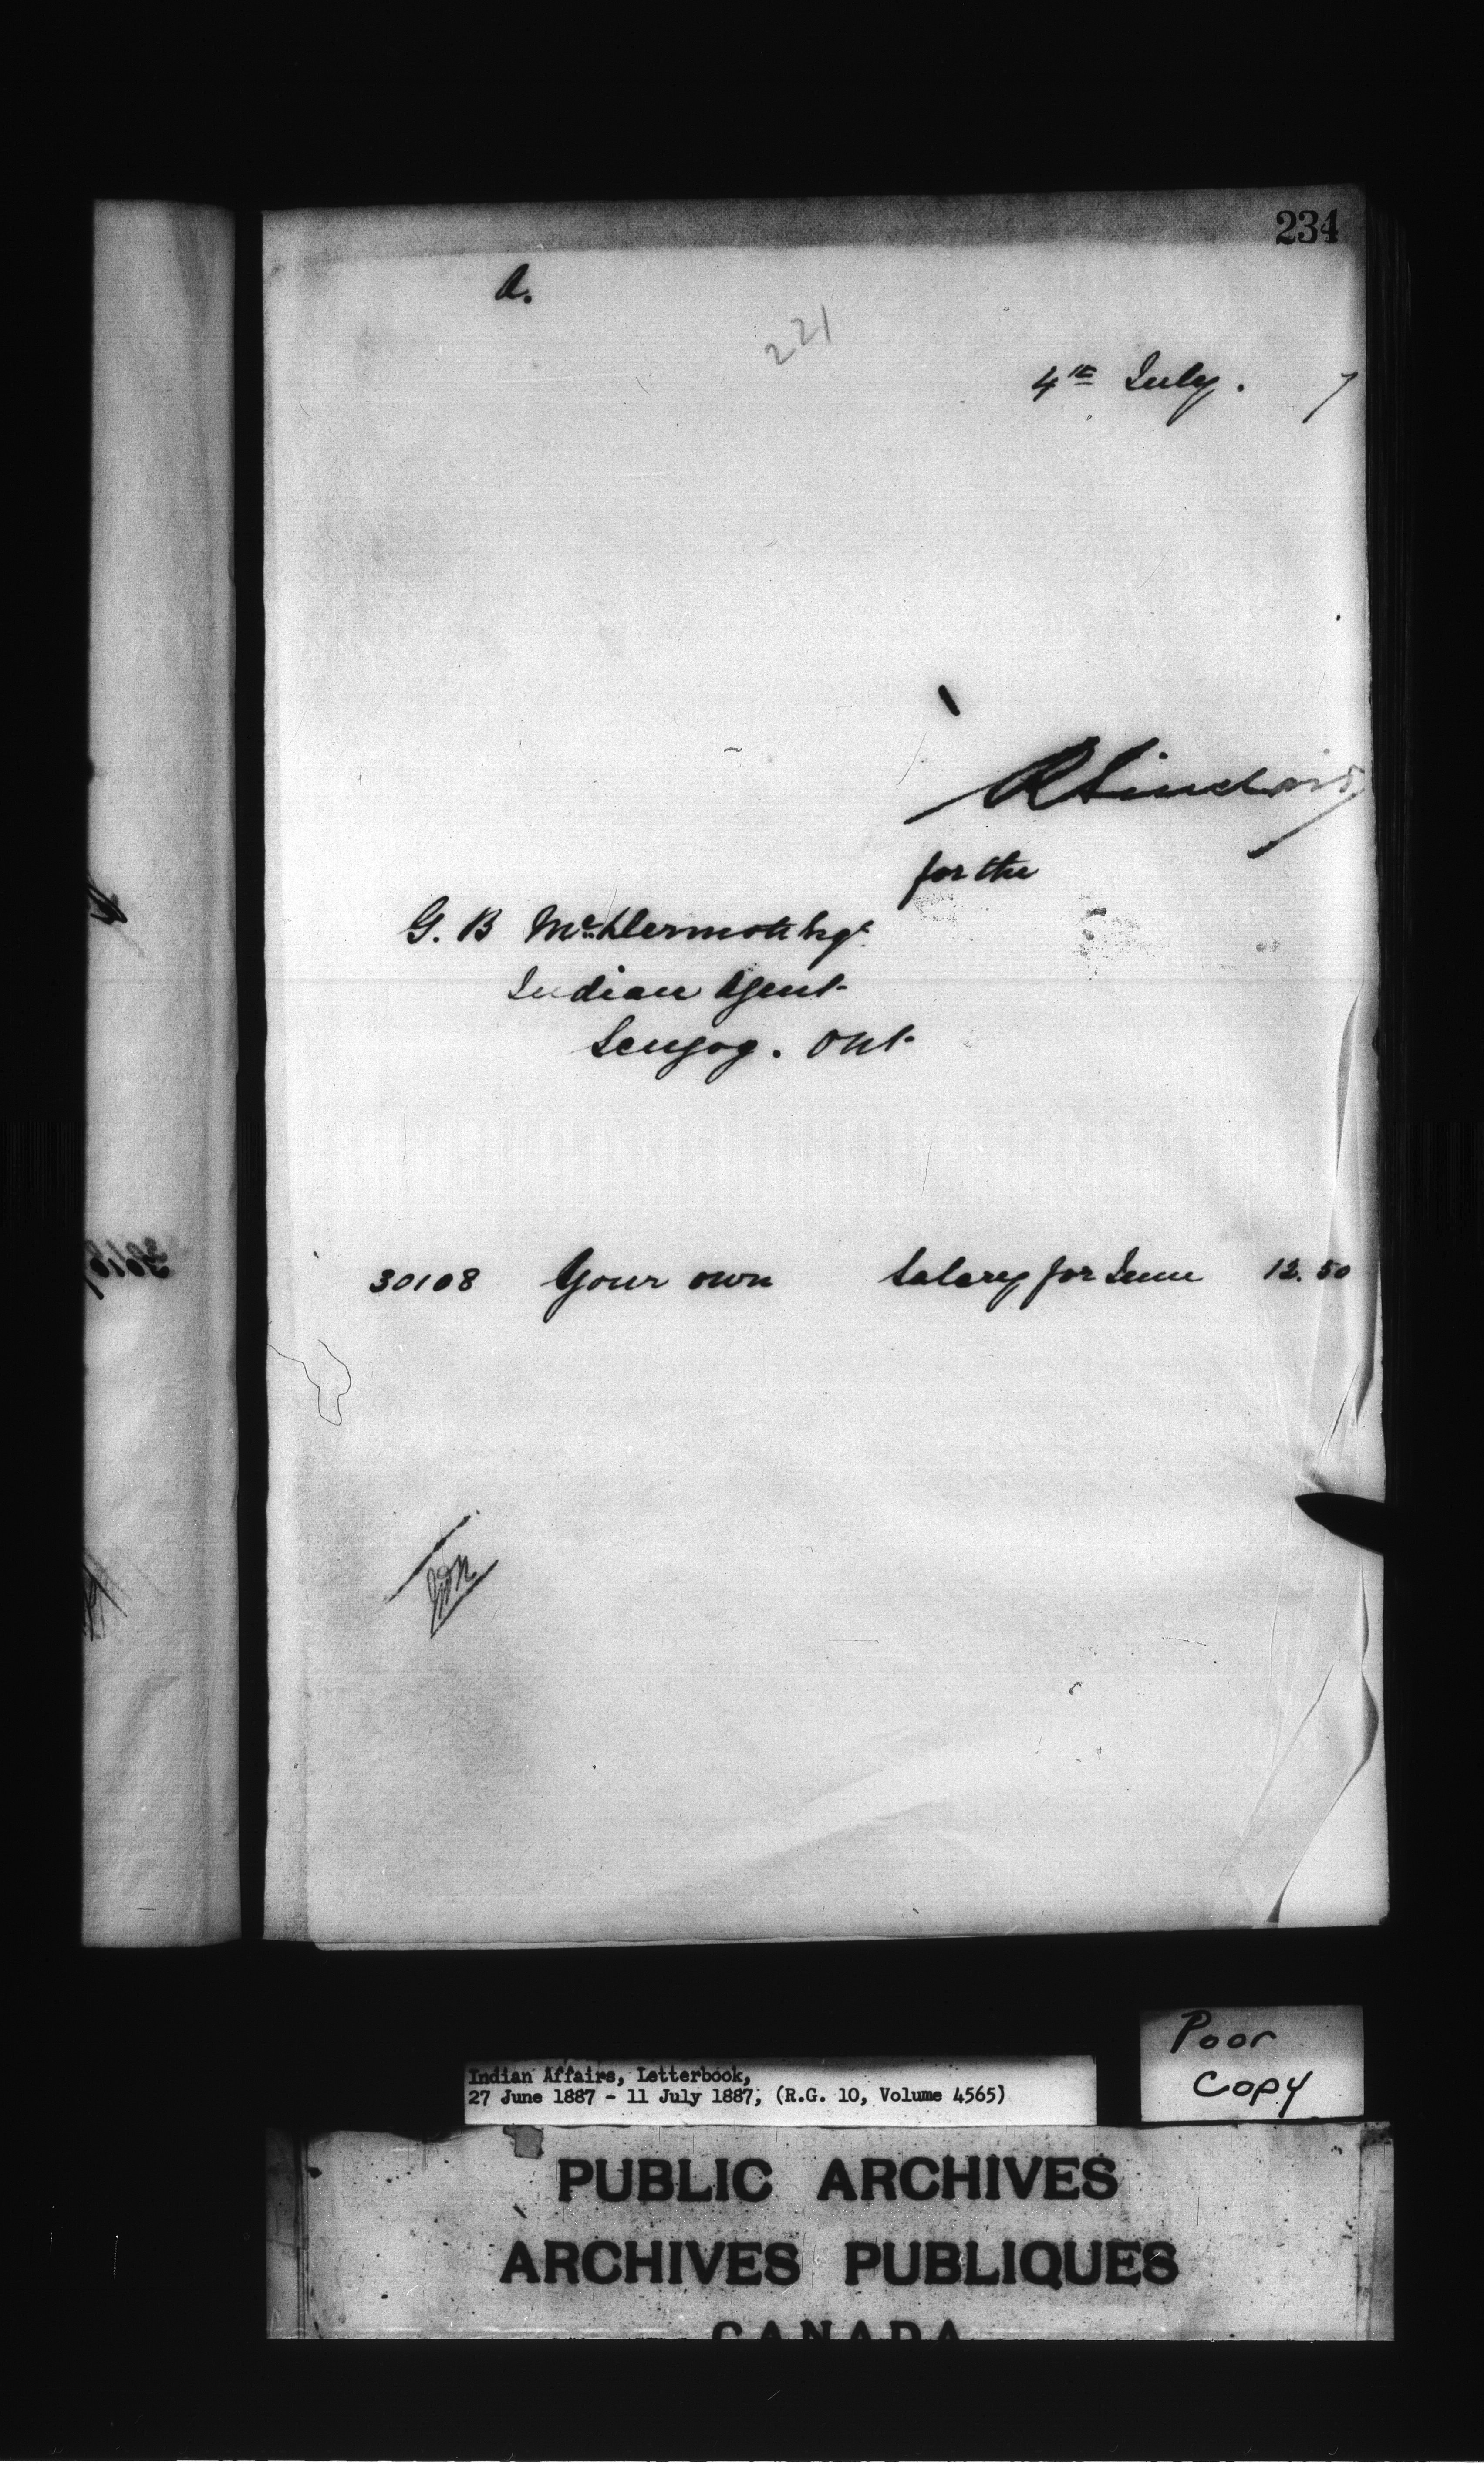 234
A.
221
4th July. 7
R Sinclair
for the
G. B McDermott Esqr
Indian Agent
Scugog. Ont
30108 Your own Salary for June 12.50
Indian Affairs, Letterbook,
27 June 1887 - 11 July 1887, (R.G. 10, Volume 4565)
Poor
Copy
PUBLIC ARCHIVES
ARCHIVES PUBLIQUES
CANADA